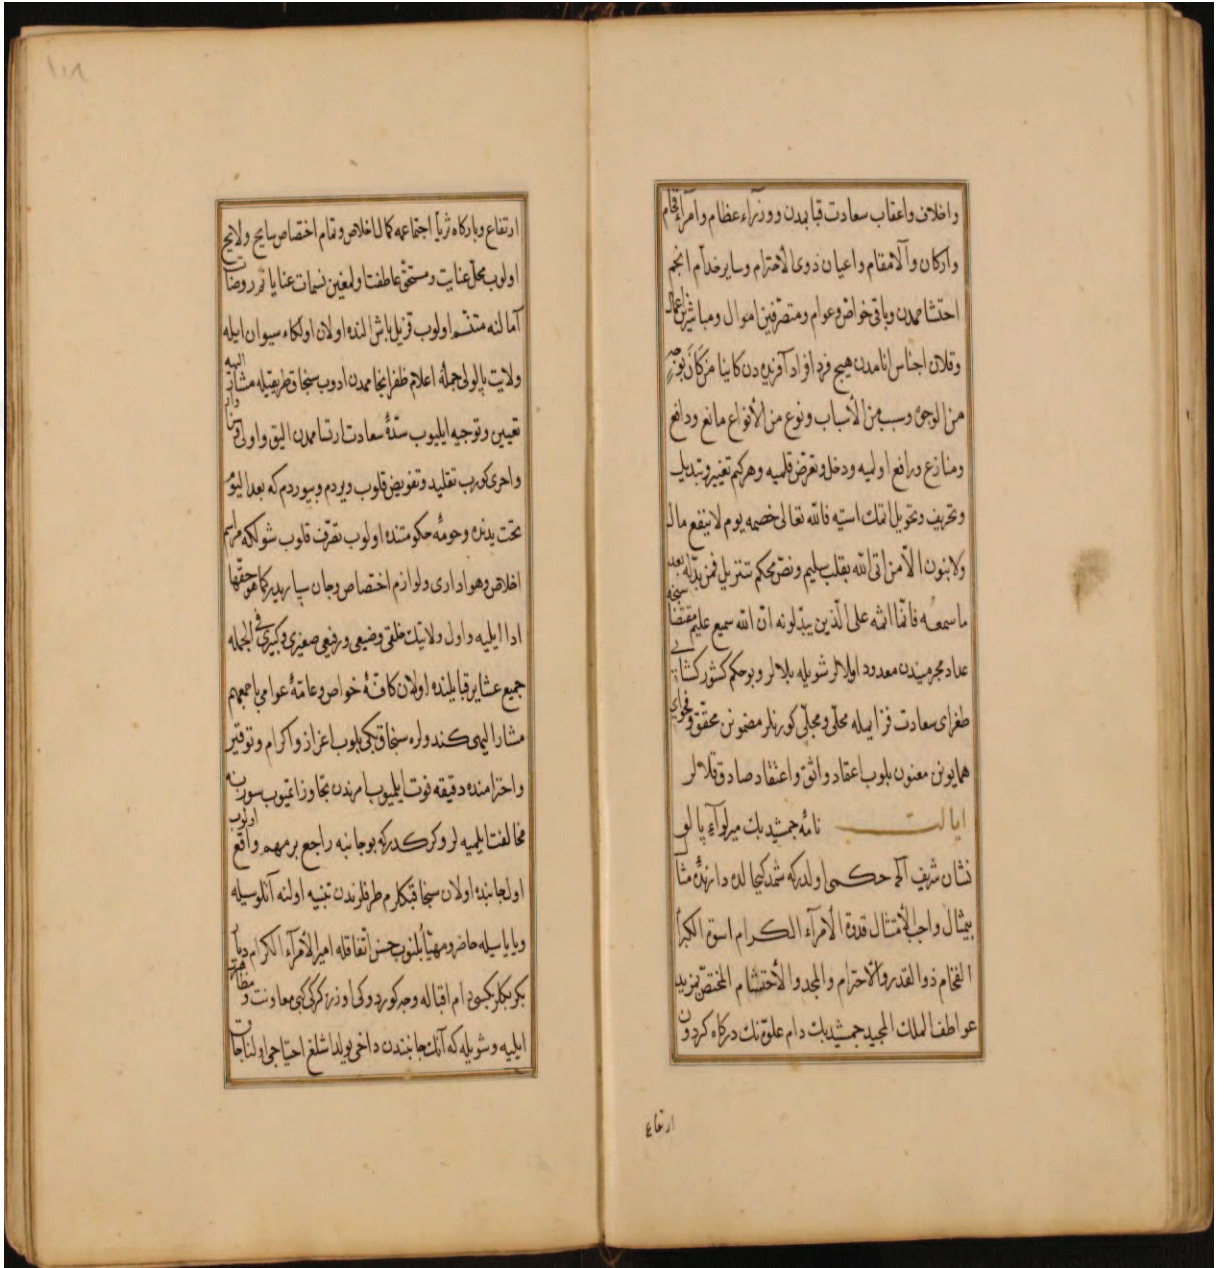 واخلاف واعقاب سعادت قبابمدن ووزراء عظام وامراء فخام
واركان وآلامقام واعيان ذوى الاحترام وساير خدام انجم
احتشاممدن وباقى خواص وعوام ومتصرفين اموال ومباشرين اعمال
وقلان اجناس انامدن هيچ فرد افراد آفريده دن كاينا من كان بوجه
من الوجوه وسبب من الأسباب ونوع من الأنواع مانع ودافع
ومنازع ورافع اولميه ودخل وتعرض قلميه وهركيم تغيير وتبديل
وتحريف وتحويل اتمك استيه فالله تعالى خصمه يوم لا ينفع مال
ولا بنون الّا من اتى الله بقلب سليم ونصّ محكم تنزيل فمن بدّله بعد
ما سمعه فانّما اثمه على الّذين يبدّلونه انّ الله سميع عليم مقتضاسنجه
عداد مجرميندن معدود اولالر شويله بلالر وبو حكم كشور كشايى
طغراى سعادت فزا ايله محلّى ومجلّى كورنلر مضمونن محقّق وفحواى
همايونن معنون بلوب اعقاد واثق واعتقاد صادق قلالر
ايالت نامۀ جمشيد بك ميرلواء پالو
نشان شريف حكمى اولدركه شمديكيحالده دارندۀ مثال
بيمثال واجب الأمتثال قدوة الأمرآء الكرام اسوة الكبرآ
الفخام ذو القدر والاحترام والمجد والأحتشام المختصّ بمزيد
عواطف الملك المجيد جمشيد بك دام علوّه نك دركاه كردون
ارتفاع
ارتفاع وباركاه ثريا اجتماعمه كمال اخلاص وتمام اختصاص سايح ولايح
اولوب محلّ عنايت ومستحقّ عاطفت اولمغين نسمات عناياتم روضات
آمالنه متنسّم اولوب قزيل باش النده اولان اولكاء سيوان ايله
ولايت پالويى جملۀ اعلام ظفر انجاممدن ادوب سنجاق طريقيله مشار اليهه
تعيين وتوجيه ايليوب سدّۀ سعادت ارتساممدن اليق واولى
واحرى كورب تقليد وتفويض قلوب ويردم وبيوردم كه بعد اليوم
تحت يدنده وحومۀ حكومتنده اولوب تصرّف قلوب شولكه مراسم
اخلاص وهوادارى ولوازم اختصاص وجان سپاريدر كما هو حقّها
ادا ايليه واول ولايتك خلقى وضيعى ورفيعى صغيرى وكبيرى فى الجمله
جميع عشاير قبايلنده اولان كافّۀ خواص وعامّۀ عوامى باجمعهم
مشار اليهى كندولره سنجاق بكى بلوب اعزاز واكرام وتوقير
واحترامنده دقيقه فوت ايليوب امرندن تجاوز اتميوب سوزنه
مخالفت ايلميه لر وكركدركه بو جانبه راجع بر مهم واقع اولوب
اول جانبده اولان سنجاق بكلرم طرفلرندن تنبيه اولنه آنلر وسيله
ويا ياسيله حاضر ومهيّا بلنوب حسن اتفاقله امير الأمرآء الكرام ديار
بكر بكلربكيسى دام اقباله وجه كوردوكى اوزره كركى كبى معاونت ومظاهرت
ايليه وشويله كه آنك جانبندن داخى يولداشلغه احتياجى اولنا